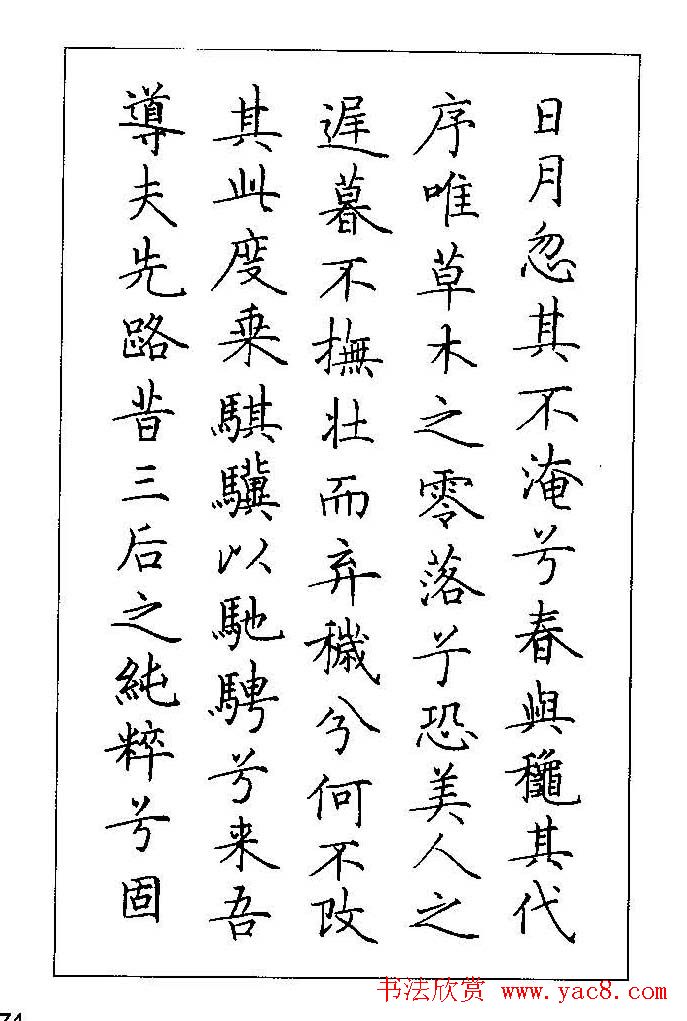 日月忽其不淹兮春與龝其代
序唯草木之零落兮恐美人之
遲暮不撫壯而弃穢兮何不改
其此度乗騏驥以馳騁兮来吾
導夫先路昔三后之純粹兮固
书法欣赏 www.yac8.com
74